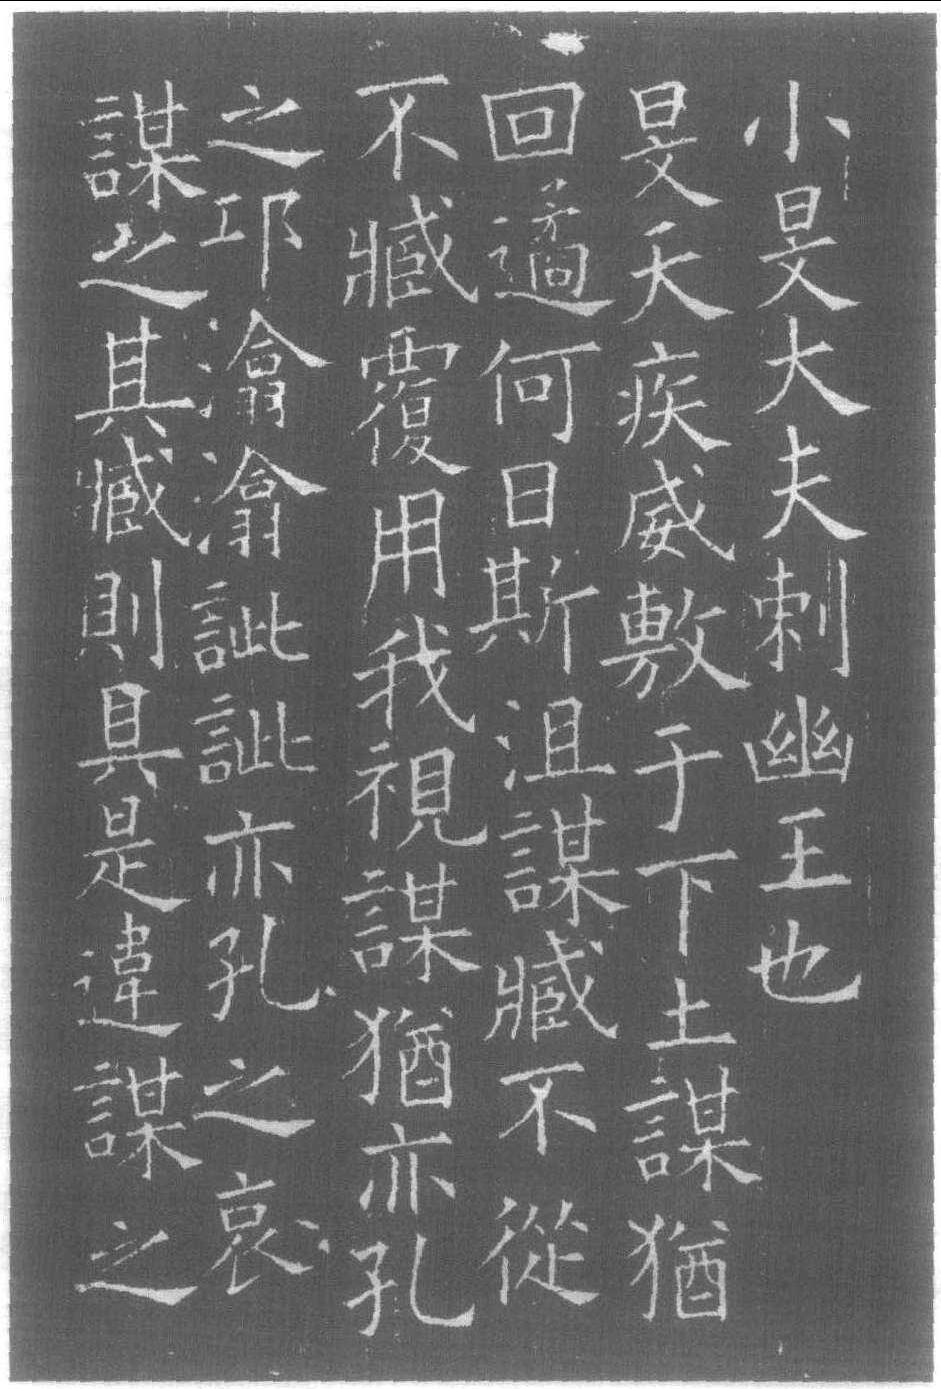 小旻大夫刺幽王也
旻天疾威敷于下土謀猶
回遹何日斯沮謀臧不從
不臧覆用我視謀猶亦孔
之邛潝潝訿訿亦孔之哀
謀之其臧則具是違謀之